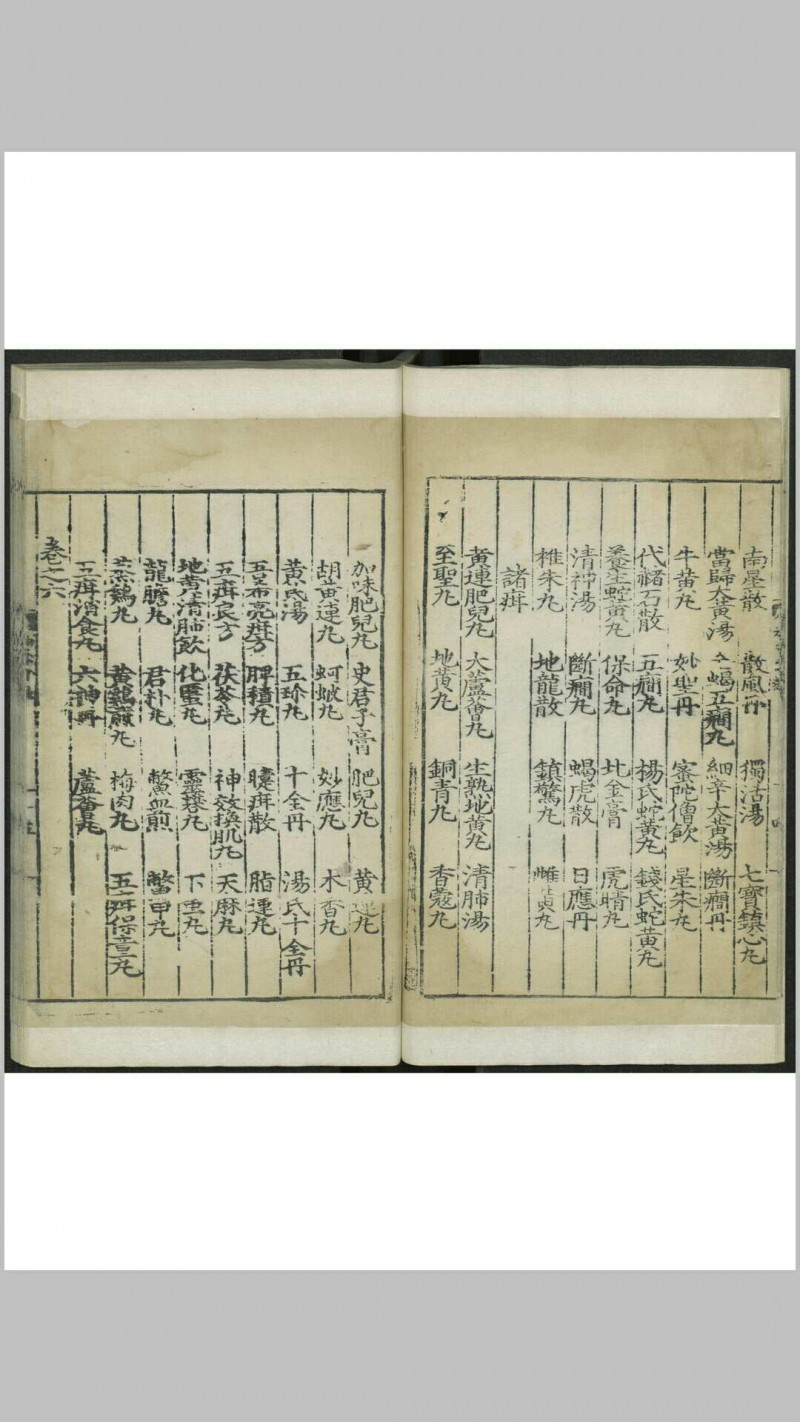 南星散 散風丹 獨活湯 七寶鎮心丸
當歸大黃湯 蝎五癇丸 細辛大黃湯 斷癇丹
牛黃丸 妙聖丹 蜜陀僧飲 星朱丸
代赭石散 五癇丸 楊氏蛇黃丸 錢氏蛇黃丸
養生蛇黃丸 保命丸 比金膏 虎睛丸
清神湯 斷癇丸 蝎虎散 日應丹
椎朱丸 地龍散 鎮驚丸 雌黃丸
諸疳
黃連肥兒丸 大蘆薈丸 生熟地黃丸 清肺湯
至聖丸 地黃丸 銅青丸 香蔻丸
加味肥兒丸 史君子膏 肥兒丸 黃連丸
胡黃連丸 蚵蚾丸 妙應丸 木香丸
黃芪湯 五珍丸 十全丹 湯氏十全丹
五疳方 脾積丸 疳散 脂連丸
五疳良方 茯苓丸 神效換肌丸 天麻丸
地黃清肺飲 化䘌丸 靈礬丸 下虫丸
龍膽丸 君朴丸 鱉血煎 鱉甲丸
蒸鷄丸 黃鷄煎丸 梅肉丸 五疳保童丸
五疳消食丸 六神丹 蘆薈丸
卷之六